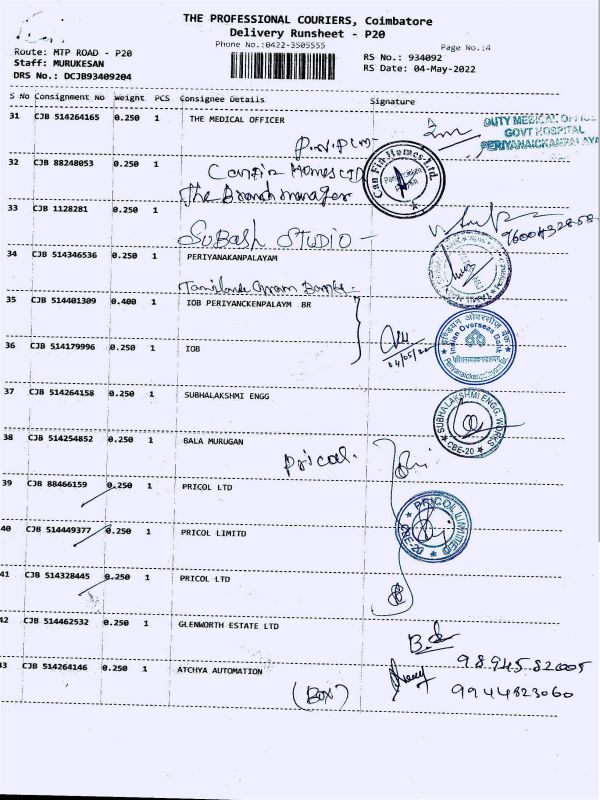 THE PROFESSIONAL COURIERS, Coimbatore
Delivery Runsheet - P20
Phone No.:0422-3505555
Page No.:4
Route: MTP ROAD - P20
Staff: MURUKESAN
DRS No.: DCJB93409204
RS No.: 934092
RS Date: 04-May-2022
S No Consignment No Weight PCS Consignee Details Signature
31 CJB 514264165 0.250 1 THE MEDICAL OFFICER
DUTY MEDICAL OFFICE
GOVT HOSPITAL
PERIYANAICKANPALAYA
32 CJB 88248053 0.250 1
The Branch manager
Can Fin Homes Ltd.
33 CJB 1128281 0.250 1
SUBASH STUDIO -
9600432858
34 CJB 514346536 0.250 1 PERIYANAKANPALAYAM
35 CJB 514401309 0.400 1 IOB PERIYANCKENPALAYM BR
04/05/22
इण्डियन ओवरसीज़ बैंक
Indian Overseas Bank
36 CJB 514179996 0.250 1 IOB
37 CJB 514264158 0.250 1 SUBHALAKSHMI ENGG
SUBHALAKSHMI ENGG. WORKS
CBE-20
38 CJB 514254852 0.250 1 BALA MURUGAN
Pricol.
39 CJB 88466159 0.250 1 PRICOL LTD
PRICOL LIMITED
CBE-20
40 CJB 514449377 0.250 1 PRICOL LIMITD
41 CJB 514328445 0.250 1 PRICOL LTD
42 CJB 514462532 0.250 1 GLENWORTH ESTATE LTD
9894582005
43 CJB 514264146 0.250 1 ATCHYA AUTOMATION
(Box)
9944823060